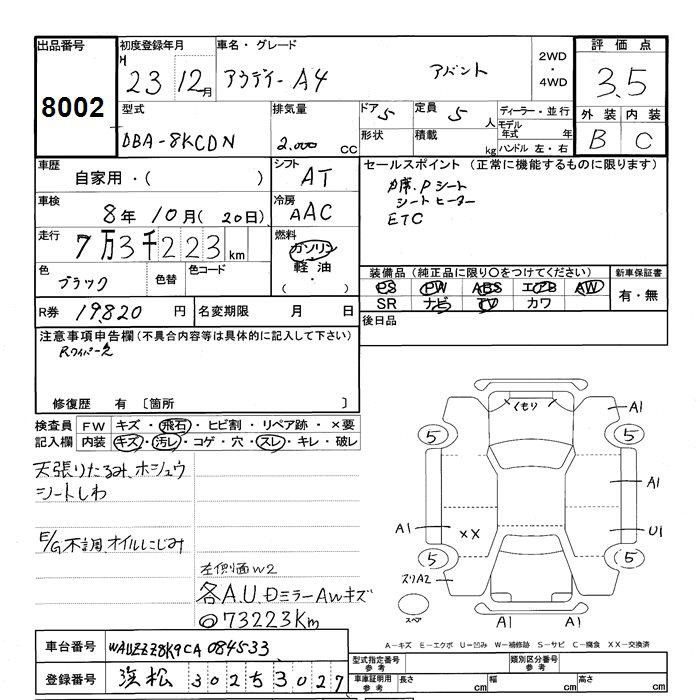 出品番号
8002
初度登録年月
H 23 12月
車名・グレード
アウディー A4 アバント
2WD
・
4WD
評価点
3.5
外装 内装
B C
型式
DBA-8KCDN
排気量
2.000 cc
ドア 5
定員 5人
形状
積載 kg
ディーラー・並行
モデル年式 年
ハンドル 左・右
車歴
自家用・( )
シフト
AT
セールスポイント (正常に機能するものに限ります)
カ席.Pシート
シートヒーター
ETC
車検
8年 10月( 20日)
冷房
AAC
走行
7万3千223km
燃料
ガソリン
軽油
・
( )
色
ブラック
色替
色コード
装備品 (純正品に限り○をつけてください)
新車保証書
PS PW ABS エアB AW
SR ナビ TV カワ
有・無
R券 19,820円
名変期限 月 日
後日品
注意事項申告欄(不具合内容等は具体的に記入して下さい)
Rワイパー欠
修復歴 有 〔箇所 〕
検査員
記入欄
FW キズ・飛石・ヒビ割・リペア跡・×要
内装 キズ・汚レ・コゲ・穴・スレ・キレ・破レ
天張りたるみ、ホシュウ
シートしわ
E/G不調 オイルにじみ
左側面W2
各A.U.DミラーAWキズ
◎73223Km
くもり
A1
5
5
A1
A1
XX
U1
5
5
スリA2
スペア
A1
A1
A-キズ E-エクボ U-凹み W-補修跡 S-サビ C-腐食 XX-交換済
車台番号
WAUZZZ8K9CA084533
登録番号
浜松 302 5 3027
型式指定番号
参考
類別区分番号
参考
車庫証明用
参考
長さ cm
幅 cm
高さ cm